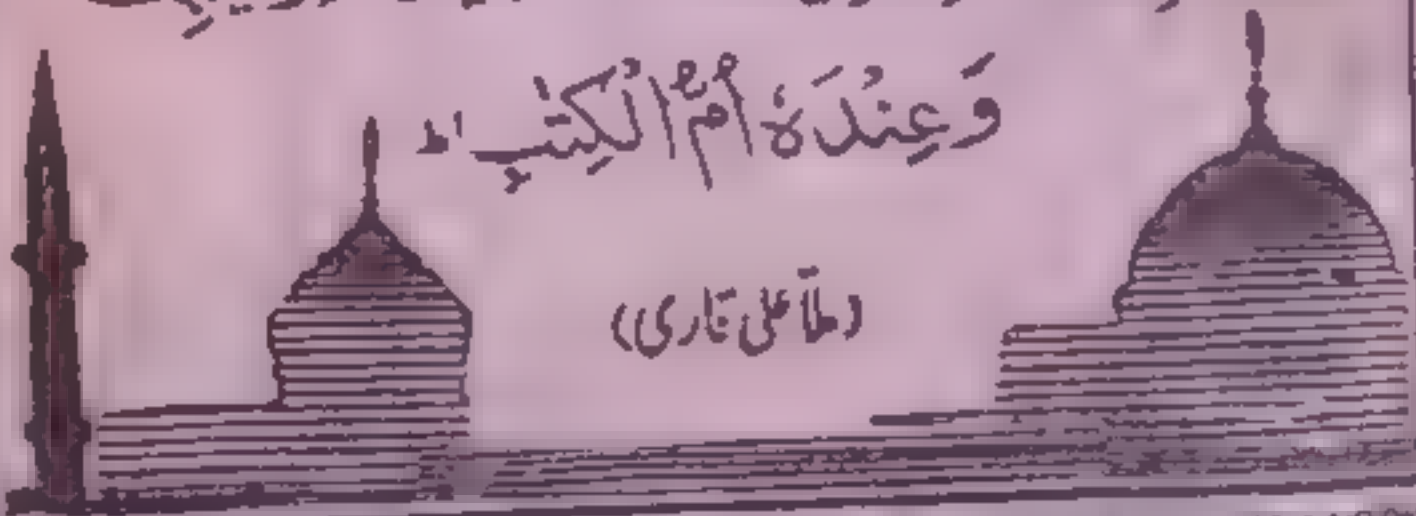 وَعِنْدَهٗ أُمُّ الْكِتٰبِ ؕ
(ملّا علی قاری)